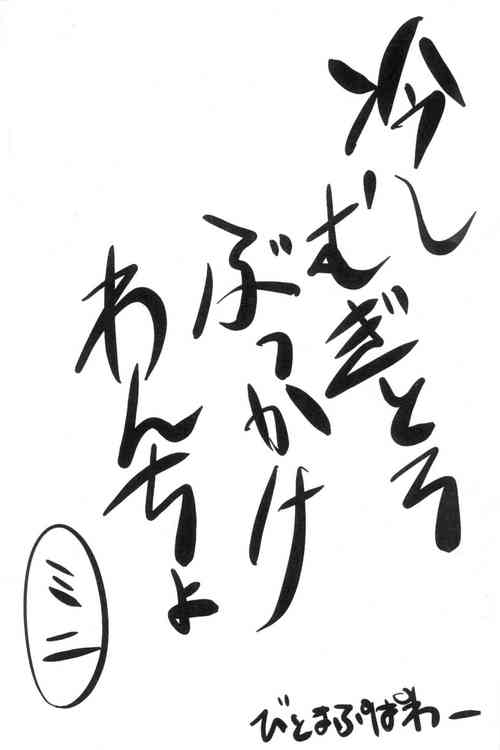 冷し
むぎとろ
ぶっかけ
わんちょ
ミニ
びとまぷぱわー